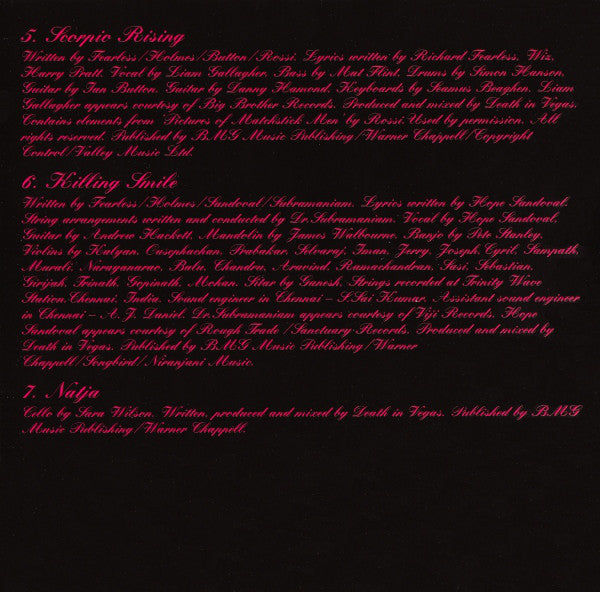 5. Scorpio Rising
Written by Fearless/Holmes/Button/Rossi. Lyrics written by Richard Fearless, Wiz,
Harry Pratt. Vocal by Liam Gallagher. Bass by Mat Flint. Drums by Simon Hanson.
Guitar by Ian Button. Guitar by Danny Hamond. Keyboards by Seamus Beaghen. Liam
Gallagher appears courtesy of Big Brother Records. Produced and mixed by Death in Vegas.
Contains elements from 'Pictures of Matchstick Men' by Rossi. Used by permission. All
rights reserved. Published by BMG Music Publishing/Warner Chappell/Copyright
Control/Valley Music Ltd.
6. Killing Smile
Written by Fearless/Holmes/Sandoval/Subramaniam. Lyrics written by Hope Sandoval.
String arrangements written and conducted by Dr. Subramaniam. Vocal by Hope Sandoval.
Guitar by Andrew Hackett. Mandolin by James Walbourne. Banjo by Pete Stanley.
Violins by Kalyan, Ousephachan, Prabakar, Selvaraj, Iman, Jerry, Joseph, Cyril, Sampath,
Murali, Narayanarao, Balu, Chandru, Aravind, Ramachandran, Sasi, Sebastian,
Girijah, Trinath, Gopinath, Mohan. Sitar by Ganesh. Strings recorded at Trinity Wave
Station, Chennai, India. Sound engineer in Chennai - S. Sai Kumar. Assistant sound engineer
in Chennai - A. J. Daniel. Dr. Subramaniam appears courtesy of Viji Records. Hope
Sandoval appears courtesy of Rough Trade/Sanctuary Records. Produced and mixed by
Death in Vegas. Published by BMG Music Publishing/Warner
Chappell/Songbird/Niranjani Music.
7. Natja
Cello by Sara Wilson. Written, produced and mixed by Death in Vegas. Published by BMG
Music Publishing/Warner Chappell.